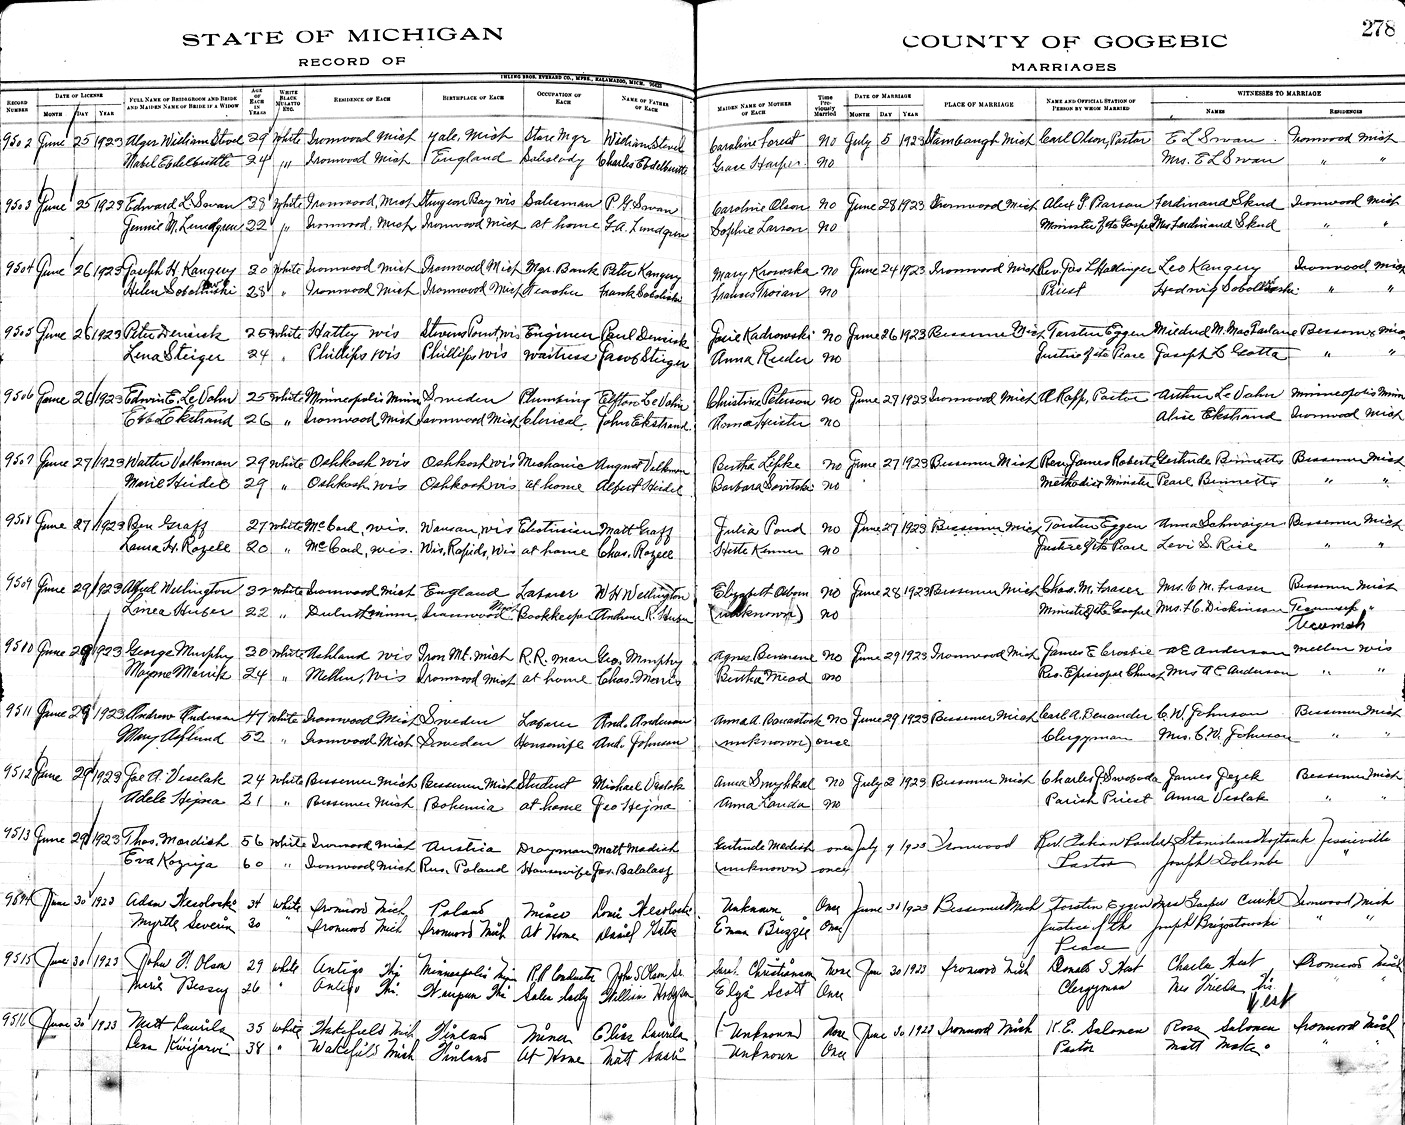 STATE OF MICHIGAN
RECORD OF
IHLING BROS. EVERARD CO., MFRS., KALAMAZOO, MICH.
COUNTY OF GOGEBIC
278
MARRIAGES
RECORD NUMBER
DATE OF LICENSE
MONTH DAY YEAR
FULL NAME OF BRIDEGROOM AND BRIDE AND MAIDEN NAME OF BRIDE IF A WIDOW
AGE OF EACH IN YEARS
WHITE BLACK MULATTO ETC.
RESIDENCE OF EACH
BIRTHPLACE OF EACH
OCCUPATION OF EACH
NAME OF FATHER OF EACH
MAIDEN NAME OF MOTHER OF EACH
Time Previously Married
DATE OF MARRIAGE
MONTH DAY YEAR
PLACE OF MARRIAGE
NAME AND OFFICIAL STATION OF PERSON BY WHOM MARRIED
WITNESSES TO MARRIAGE
NAMES
RESIDENCES
9502 June 25 1923 Alger William 29 White Ironwood Mich Yale, Mich Store Mgr William Caroline Forest No July 5 1923 Stambaugh Mich Carl Olson, Pastor E L Swan Ironwood Mich
Mabel 24 " Ironwood Mich England Charles Grace Harper No Mrs. E L Swan " "
9503 June 25 1923 Edward L. Swan 38 White Ironwood, Mich Sturgeon Bay Wis Salesman P G Swan Caroline Olson No June 28 1923 Ironwood Mich Alex F Parson Ferdinand Skud Ironwood Mich
Jennie M. Lundgren 22 " Ironwood, Mich Ironwood Mich at home G.A. Lundgren Sophie Larson No Minister of the Gospel Mrs Ferdinand Skud " "
9504 June 26 1923 Joseph H Kangery 30 White Ironwood Mich Ironwood Mich Mgr. Bank Peter Kangery Mary Krowska No June 24 1923 Ironwood Mich Rev. Jos L Hollinger Leo Kangery Ironwood Mich
Helen 28 " Ironwood Mich Ironwood Mich Teacher Frank Frances Troian No Priest Hedwig " "
9505 June 26 1923 Peter Denisk 25 White Hatley Wis Stevens Point, Wis Engineer Paul Denisk Josie Kadrowski No June 26 1923 Bessemer Mich Torsten Eggen Mildred M. MacFarlane Bessemer Mich
Lena Steiger 24 " Phillips Wis Phillips Wis Waitress Jacob Steiger Anna Reeder No Justice of the Peace Joseph L Gotta " "
9506 June 26 1923 Edwin E. Le Vahn 25 White Minneapolis Minn Sweden Plumbing Le Vahn Christine Peterson No June 27 1923 Ironwood Mich A Rapp, Pastor Arthur Le Vahn Minneapolis Minn
Ebba Ekstrand 26 " Ironwood Mich Ironwood Mich Clerical John Ekstrand Anna No Alice Ekstrand Ironwood Mich
9507 June 27 1923 Walter Volkman 29 White Oshkosh Wis Oshkosh Wis Mechanic August Volkman Bertha Lipke No June 27 1923 Bessemer Mich Rev. James Roberts Gertrude Binnetts Bessemer Mich
Marie Heidel 29 " Oshkosh Wis Oshkosh Wis at home Albert Heidel Barbara No Methodist Minister Pearl Binnetts " "
9508 June 27 1923 Ben Graff 27 White McCord, Wis. Wausau, Wis Electrician Matt Graff Julia Pond No June 27 1923 Bessemer Mich Torsten Eggen Anna Schwaiger Bessemer Mich
Laura H. Rozell 20 " McCord, Wis. Wis. Rapids, Wis at home Chas. Rozell Hettie Kenner No Justice of the Peace Levi S. Rice " "
9509 June 29 1923 Alfred Wellington 32 White Ironwood Mich England Laborer W H Wellington Elizabeth Osborn No June 28 1923 Bessemer Mich Chas. M. Fraser Mrs. C. M. Fraser Bessemer Mich
Linea Huber 22 " Duluth Minn. Ironwood Mich Bookkeeper Andrew R. Huber (unknown) No Minister of the Gospel Mrs. F. C. Dickinson Tecumseh "
Tecumseh
9510 June 29 1923 George Murphy 30 White Ashland Wis Iron Mt. Mich R.R. man Geo. Murphy Agnes No June 29 1923 Ironwood Mich James E Crosbie A E Anderson Mellen Wis
Mayme 24 " Mellen, Wis Ironwood Mich at home Chas. Morris Bertha Mead No Res. Episcopal Church Mrs A E Anderson " "
9511 June 29 1923 Andrew Anderson 47 White Ironwood Mich Sweden Laborer And. Anderson Anna A. No June 29 1923 Bessemer Mich Carl A. Benander C. W. Johnson Bessemer Mich
Mary Asplund 52 " Ironwood Mich Sweden Housewife And. Johnson (unknown) once Clergyman Mrs. C. W. Johnson " "
9512 June 29 1923 Joe A. Veselak 24 White Bessemer Mich Bessemer Mich Student Michael Veselak Anna Smyhkal No July 2 1923 Bessemer Mich Charles J Swoboda James Jezek Bessemer Mich
Adele Hejna 21 " Bessemer Mich Bohemia at home Geo Hejna Anna Landa No Parish Priest Anna Veslak " "
9513 June 29 1923 Thos. Mardish 56 White Ironwood Mich Austria Drayman Matt Madish Gertrude Madish once July 9 1923 Ironwood Rev. Fabian Stanislaus Jessieville
Eva 60 " Ironwood Mich Rus. Poland Housewife Jos. (unknown) once Pastor Joseph "
9514 June 30 1923 Adam 34 White Ironwood Mich Poland Miner Louis Unknown Once June 31 1923 Bessemer Mich Torsten Eggen Mrs Ironwood Mich
Myrtle Severin 30 " Ironwood Mich Ironwood Mich At Home Daniel Gates Emma Once Justice of the Peace Joseph " "
9515 June 30 1923 John H. Olson 29 White Antigo Wis Minneapolis Minn RR Conductor John S Olson Sr. Christianson None June 30 1923 Ironwood Mich Donald S Kent Charles Kent Ironwood Mich
Marie Bessey 26 " Antigo Wis. Waupun Wis Sales Lady William Scott Once Clergyman Mrs
9516 June 30 1923 Matt Laurila 35 White Wakefield Mich Finland Miner Elias Laurila (Unknown) None June 30 1923 Ironwood Mich K. E. Salonen Rosa Salonen Ironwood Mich
Lena Kivijarvi 38 " Wakefield Mich Finland At Home Matt Unknown Once Pastor Matt " "